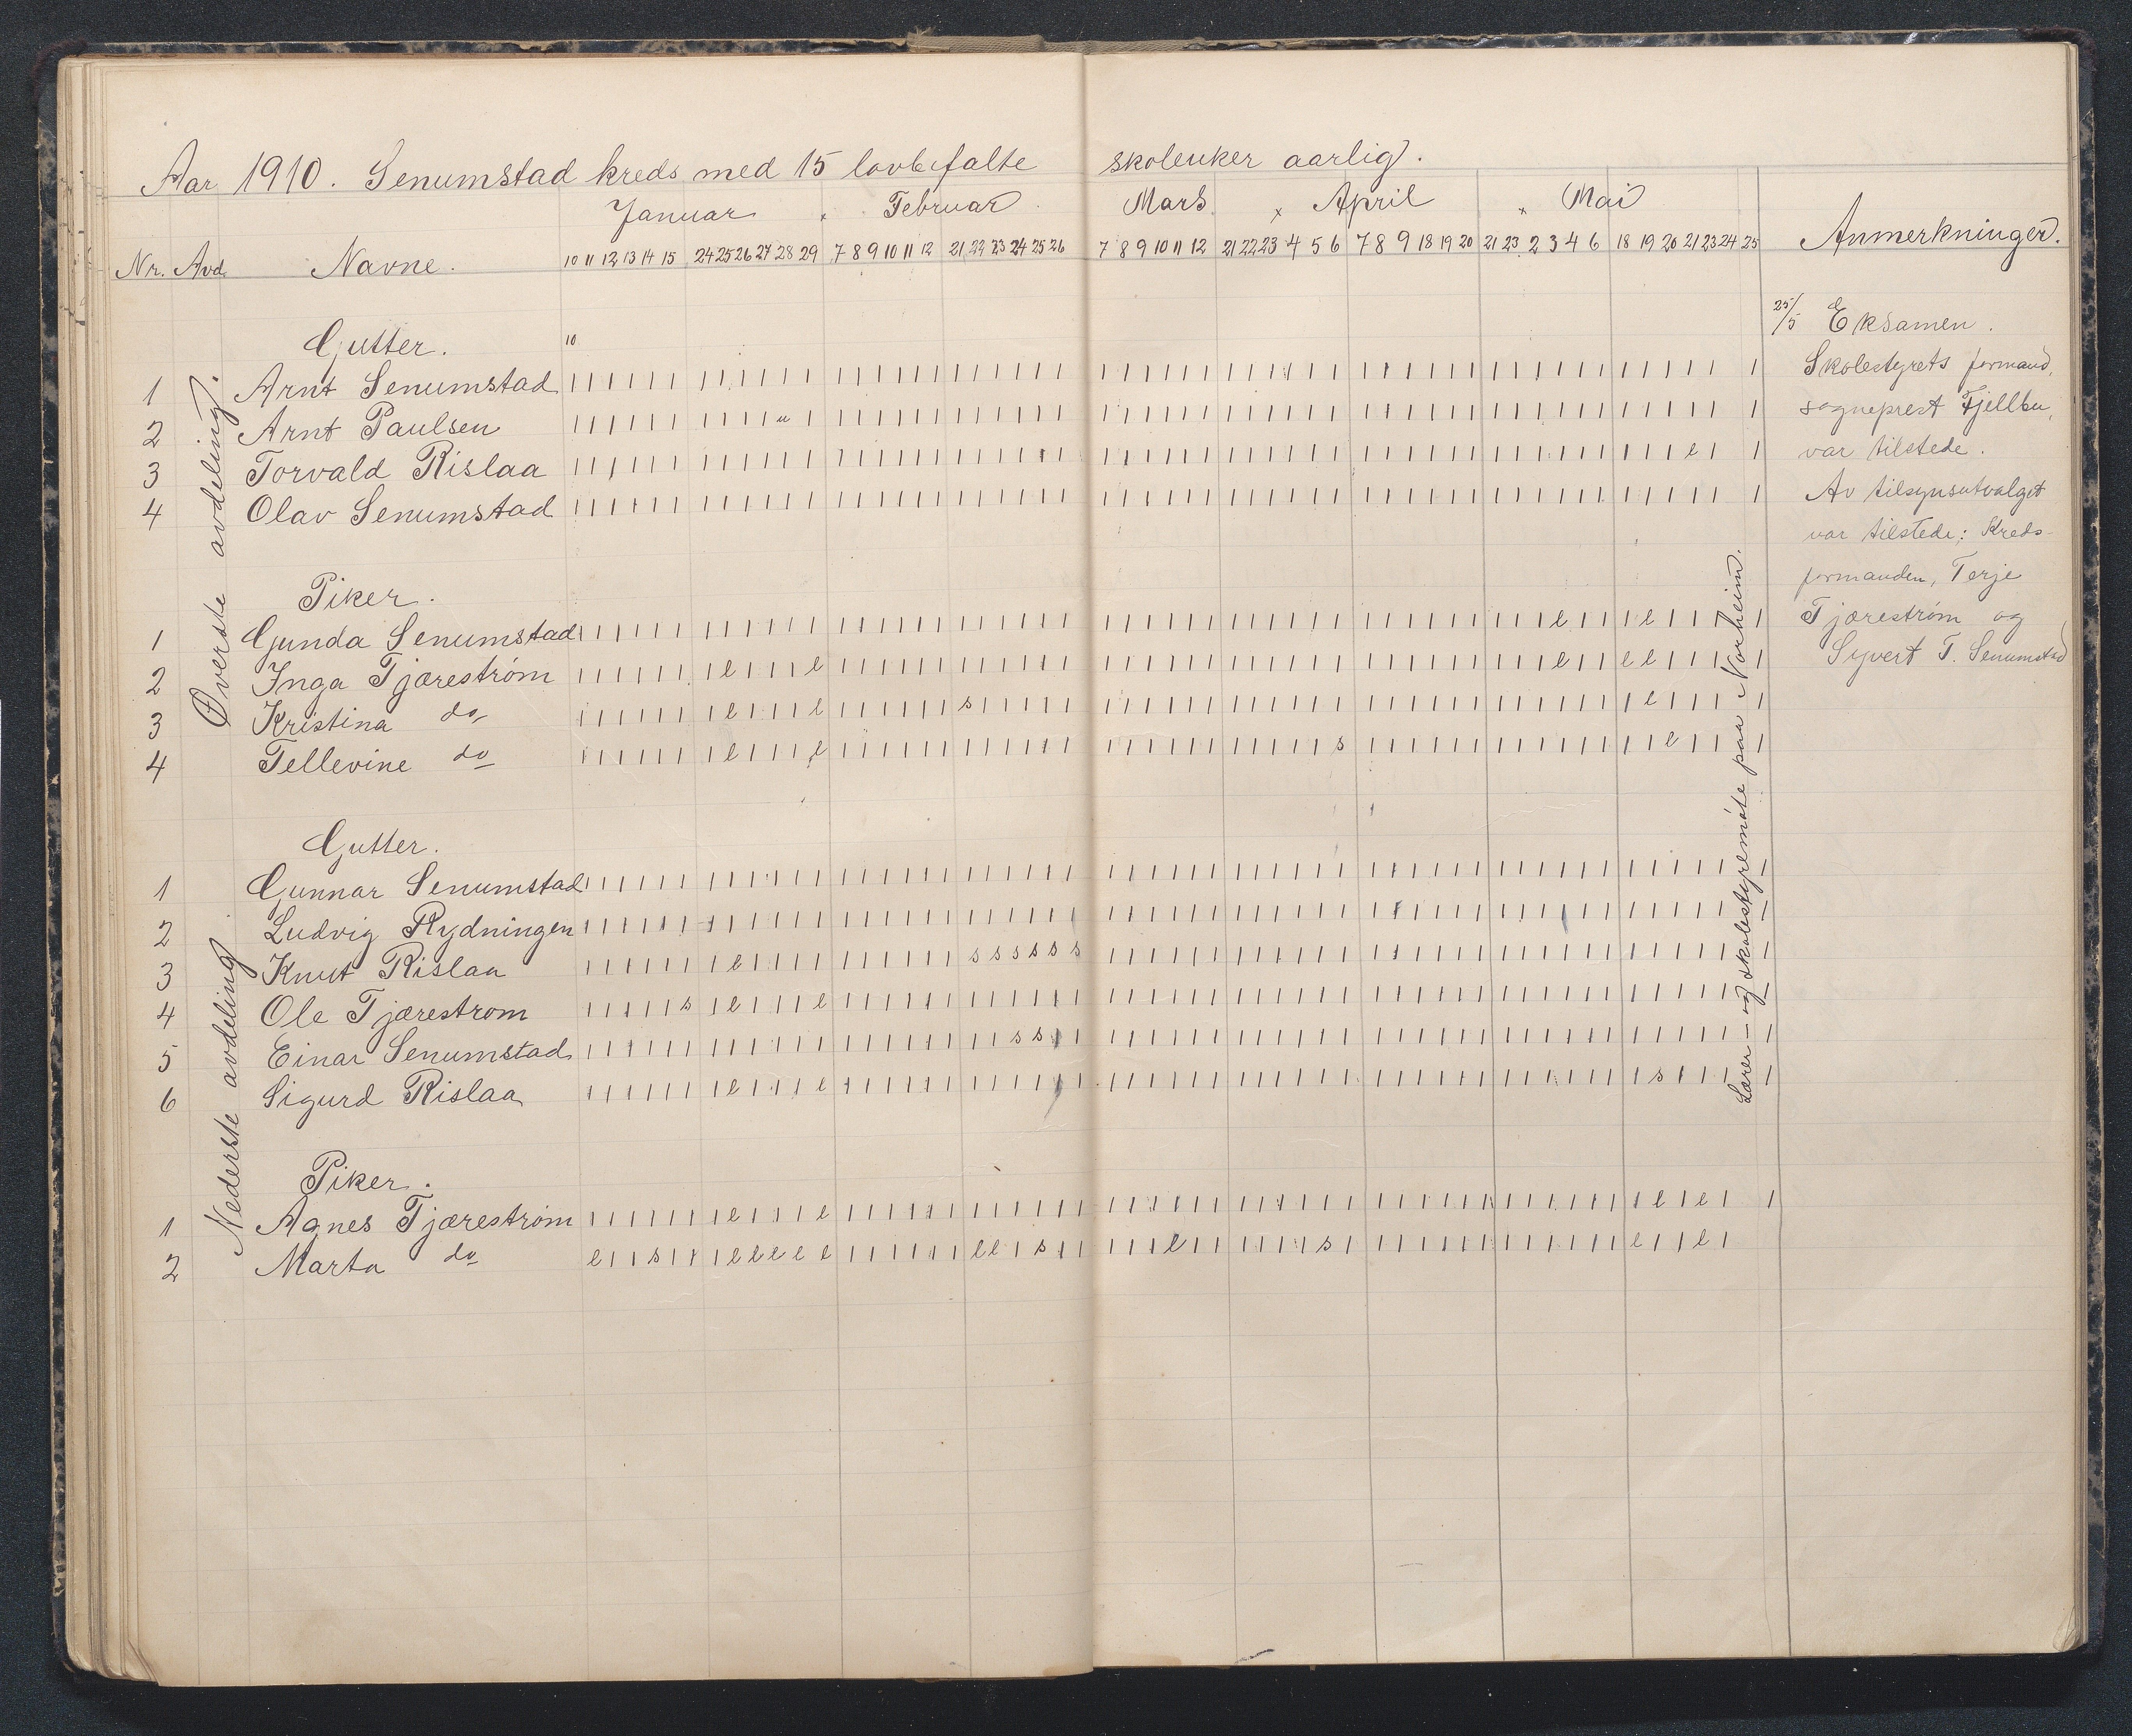 Aar 1910. Senumstad kreds med 15 lovbefalte skoleuker aarlig.
Januar x Februar Mars x April x Mai
Nr. Avd. Navne. 10 11 12 13 14 15 24 25 26 27 28 29 7 8 9 10 11 12 21 22 23 24 25 26 7 8 9 10 11 12 21 22 23 4 5 6 7 8 9 18 19 20 21 23 2 3 4 6 18 19 20 21 23 24 25 Anmerkninger.
Øverste avdeling.
Gutter. 10
1 Arnt Senumstad
2 Arnt Paulsen
3 Torvald Rislaa
4 Olav Senumstad
Piker.
1 Gunda Senumstad
2 Inga Tjæreström
3 Kristina do
4 Tellevine do
Nederste avdeling
Gutter.
1 Gunnar Senumstad
2 Ludvig Rydningen
3 Knut Rislaa
4 Ole Tjærestrom
5 Einar Senumstad
6 Sigurd Rislaa
Piker.
1 Agnes Tjæreström
2 Marta do
Lærer- og skolestyremöte paa Norheim.
25/5 Eksamen.
Skolestyrets formand,
sogneprest Fjellbu,
var tilstede.
Av tilsynsutvalget
var tilstede: Kreds-
formanden, Terje
Tjæreström og
Syvert T. Senumstad